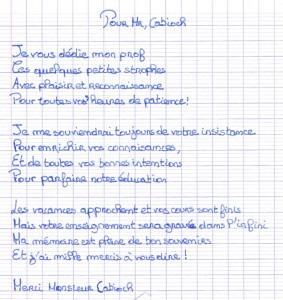 Pour Mr, Cabioch
Je vous dédie mon prof
Ces quelques petites strophes
Avec plaisir et reconnaissance
Pour toutes vos heures de patience !
Je me souviendrai toujours de votre insistance
Pour enrichir vos connaissances,
Et de toutes vos bonnes intentions
Pour parfaire notre éducation
Les vacances approchent et vos cours sont finis
Mais votre enseignement sera gravée dans l'infini
Ma mémoire est pleine de bon souvenirs
Et j'ai mille mercis à vous dire !
Merci Monsieur Cabioch